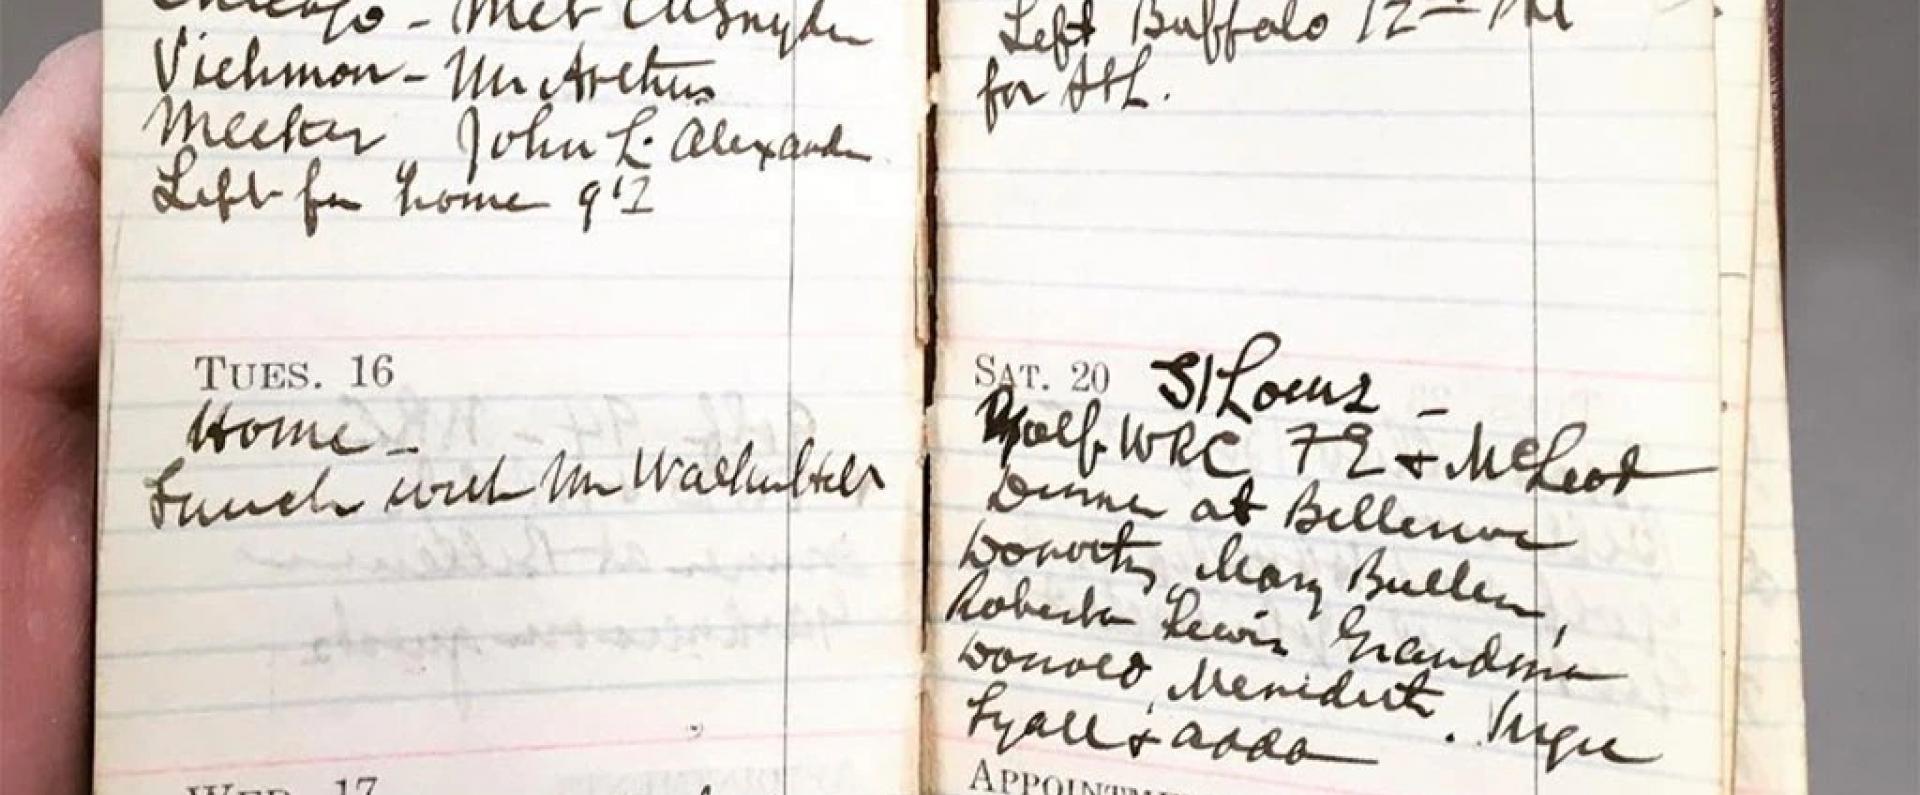 Chicago - Met
Vichmon - Mr Arthur
Meeker John L. Alexander
Left for home
TUES. 16
Home -
Lunch with Mr
WED. 17
Left Buffalo 12
for
SAT. 20 St Louis -
Golf WRC 79 + McLeod
Dinner at Bellerive
Dorothy, Mary Bullen,
Roberta Lewis Grandma
Donald, Meredith.
Lyall + Adda
APPOINTM